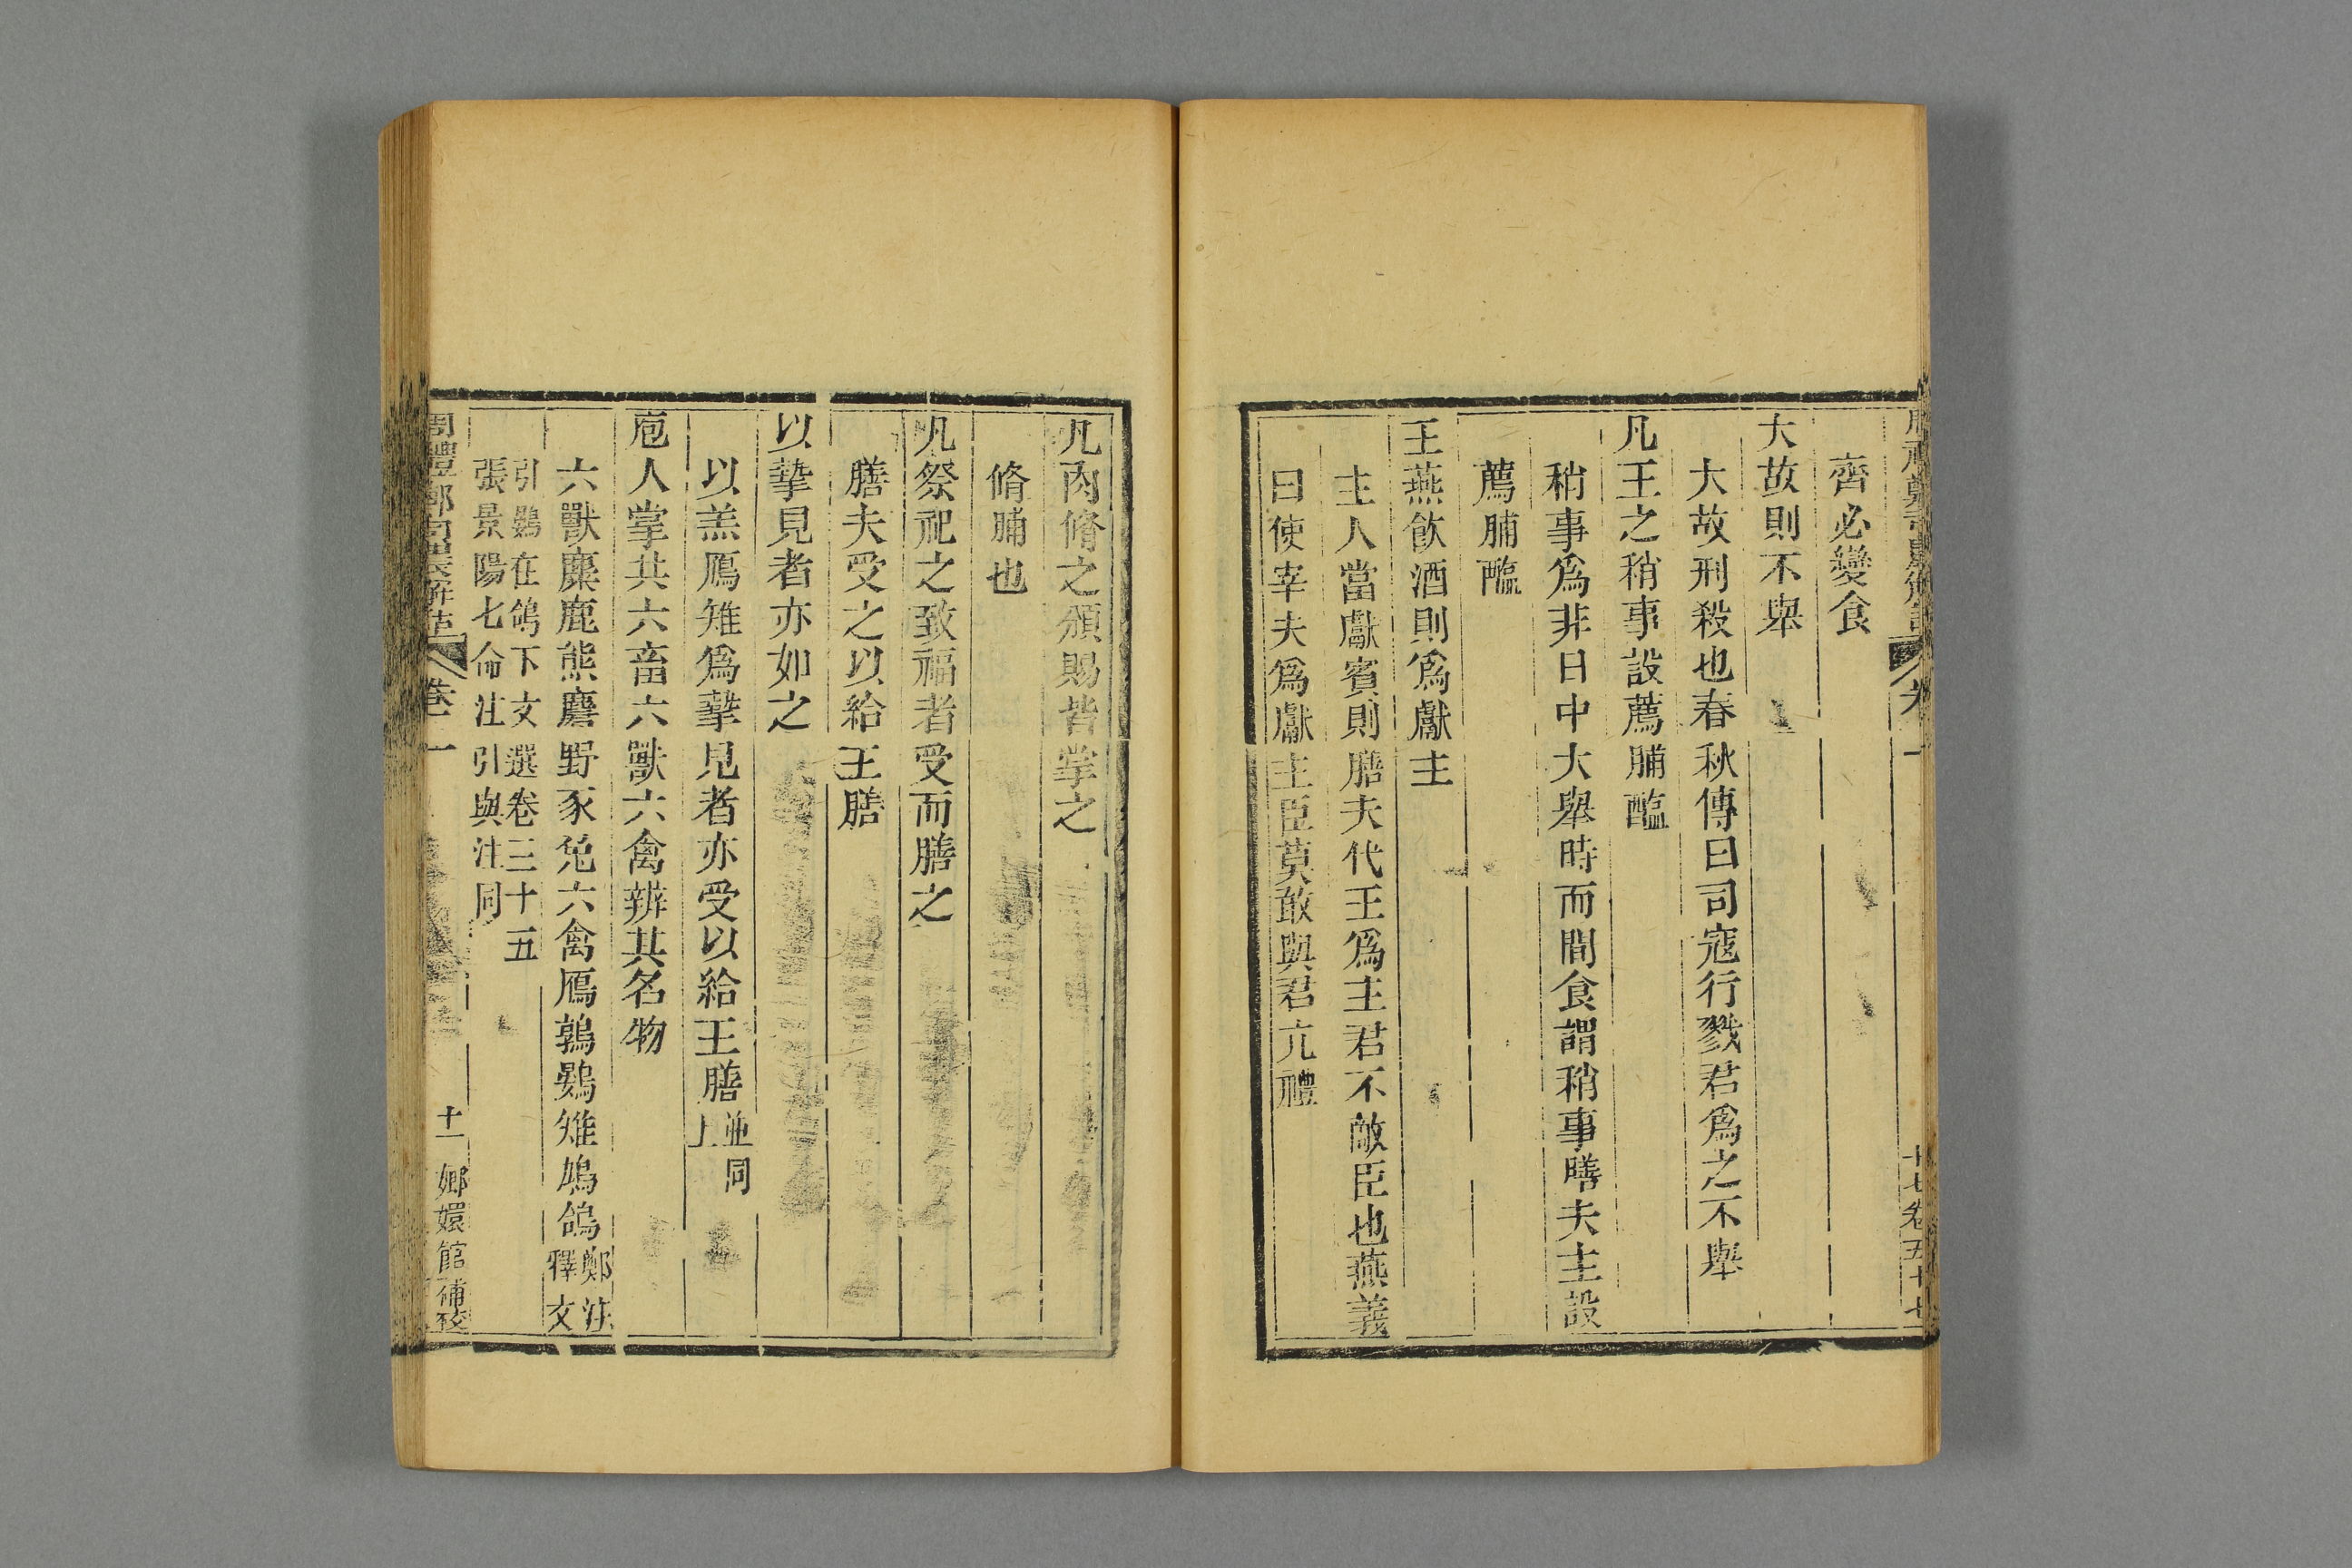 齊必變食
大故則不舉
大故刑殺也春秋傳曰司寇行戮君爲之不舉
凡王之稍事設薦脯醢
稍事爲非日中大舉時而間食謂稍事膳夫主設
薦脯醢
王燕飮酒則爲獻主
主人當獻賓則膳夫代王爲主君不敵臣也燕義
曰使宰夫爲獻主臣莫敢與君亢禮
凡肉脩之頒賜皆掌之
脩脯也
凡祭祀之致福者受而膳之
膳夫受之以給王膳
以摯見者亦如之
以羔鴈雉爲摯見者亦受以給王膳並同
上
庖人掌共六畜六獸六禽辨其名物
六獸麋鹿熊麕野豕兔六禽鴈鶉鷃雉鳩鴿鄭注
釋文
引鷃在鴿下文選卷三十五
張景陽七命注引與注同
卷一
十一
嫏嬛館補校